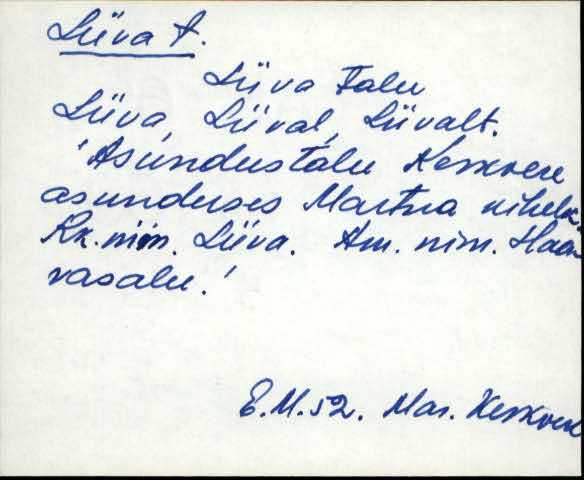 Liiva t.
Liiva talu
Liiva, Liival, Liivalt.
'Asundustalu Keskvere
asunduses Martna kihelk.
Rk. nim. Liiva. Am. nim. Haa
vasalu.'
E.M. 52. Mar. Keskvere